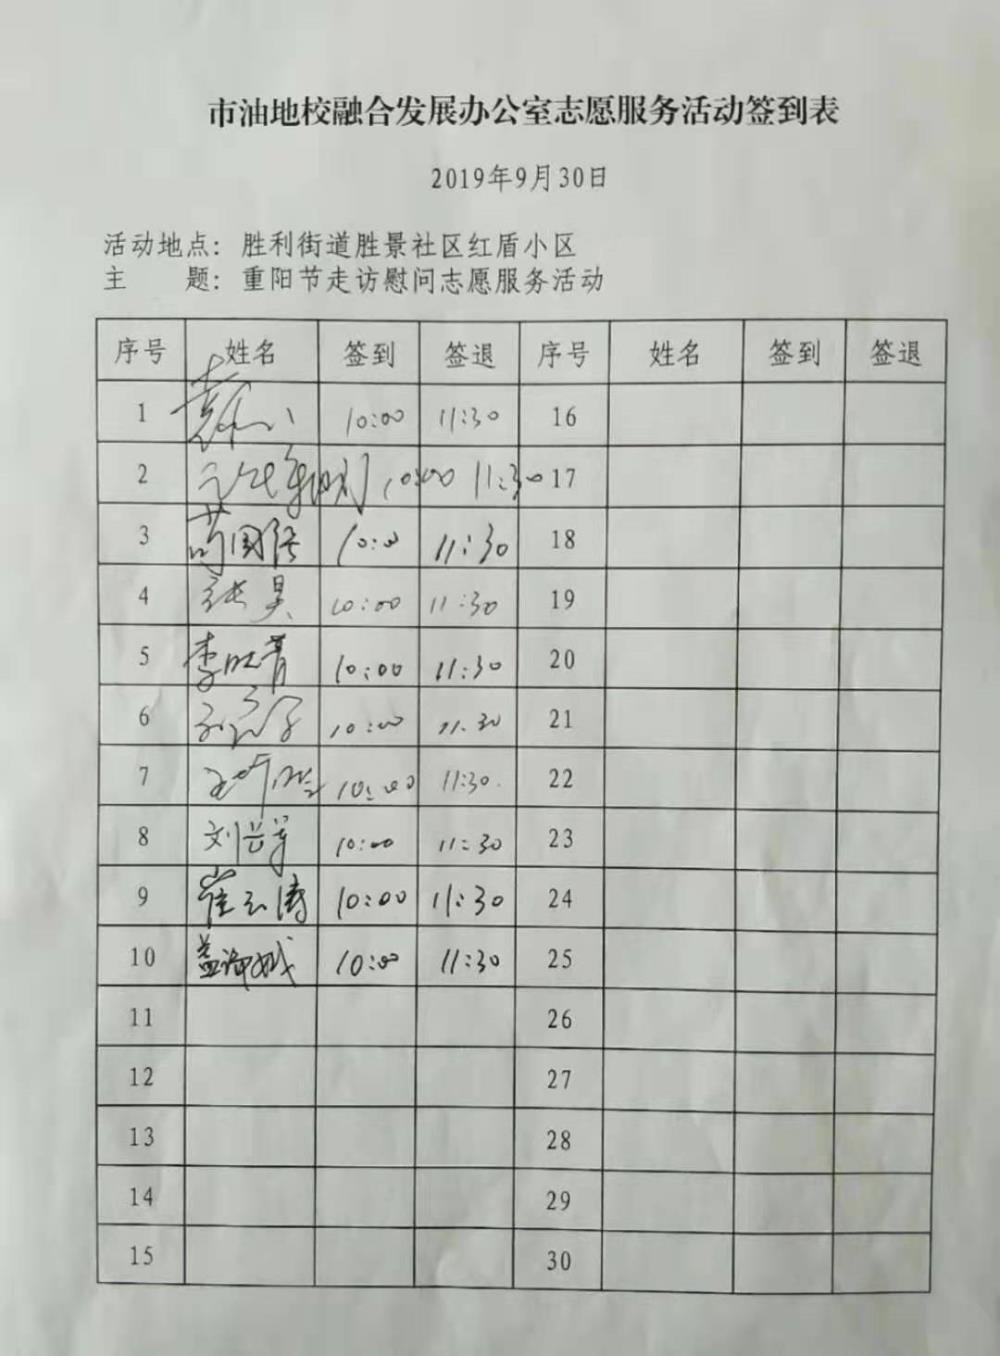 市油地校融合发展办公室志愿服务活动签到表
2019年9月30日
活动地点：胜利街道胜景社区红盾小区
主　　题：重阳节走访慰问志愿服务活动
序号 姓名 签到 签退 序号 姓名 签到 签退
1 10:00 11:30 16
2 10:00 11:30 17
3 10:00 11:30 18
4 张昊 10:00 11:30 19
5 10:00 11:30 20
6 10:00 11.30 21
7 10:00 11:30. 22
8 10:00 11:30 23
9 崔云涛 10:00 11:30 24
10 10:00 11:30 25
11 26
12 27
13 28
14 29
15 30